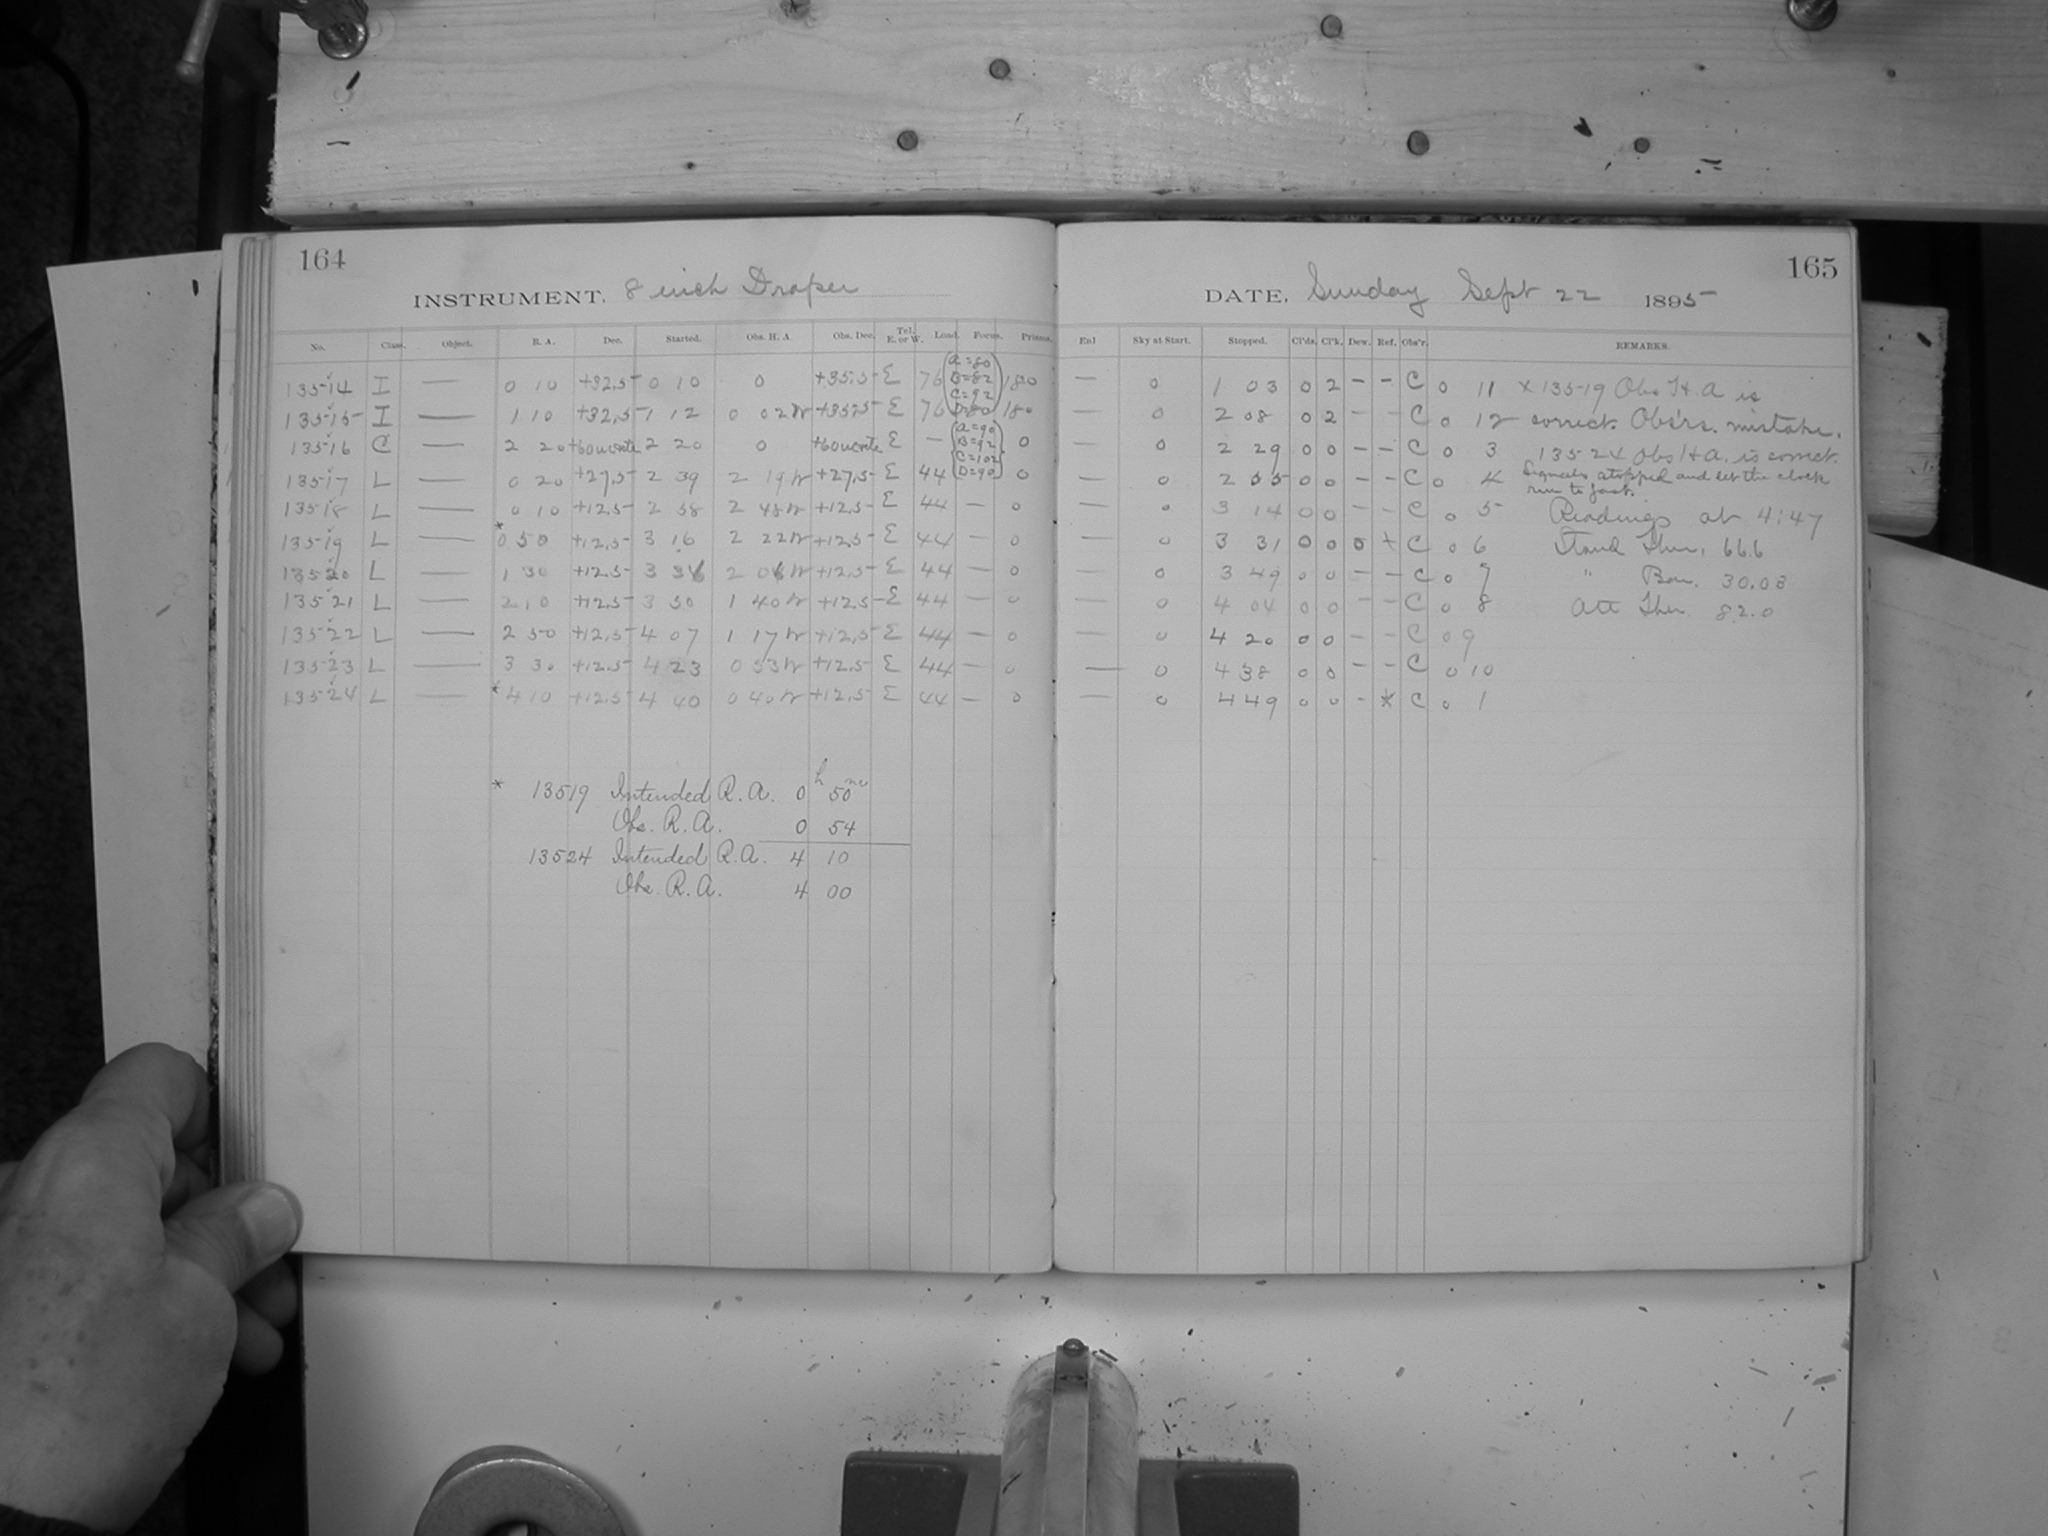 164
INSTRUMENT, 8 inch Draper
No. Class. Object. R. A. Dec. Started. Obs. H. A. Obs. Dec. Tel. E. or W. Load. Focus. Prisms.
13514 I — 0 10 +32.5 0 10 0 +35.5 E 76 A=80 B=82 C=92 D=80 180
13515 I — 1 10 +32.5 1 12 0 02W +35.5 E 76 180
13516 C — 2 20 +60 write 2 20 0 +60 write E — A=90 B=92 C=102 D=90 0
13517 L — 0 20 +27.5 2 39 2 19W +27.5 E 44 0
13518 L — 0 10 +12.5 2 58 2 48W +12.5 E 44 — 0
13519 L — *0 50 +12.5 3 16 2 22W +12.5 E 44 — 0
13520 L — 1 30 +12.5 3 34 2 04W +12.5 E 44 — 0
13521 L — 2 10 +12.5 3 50 1 40W +12.5 E 44 — 0
13522 L — 2 50 +12.5 4 07 1 17W +12.5 E 44 — 0
13523 L — 3 30 +12.5 4 23 0 53W +12.5 E 44 — 0
13524 L — *4 10 +12.5 4 40 0 40W +12.5 E 44 — 0
* 13519 Intended R.A. 0h 50m
Obs. R.A. 0 54
13524 Intended R.A. 4 10
Obs. R.A. 4 00
165
DATE, Sunday Sept 22 1895
Enl Sky at Start. Stopped. Cl'ds. Cl'k. Dew. Ref. Obs'r. REMARKS.
— 0 1 03 0 2 – – C 0 11 x 13519 Obs H A is
— 0 2 08 0 2 – – C 0 12 correct. Obsrs. mistake.
— 0 2 29 0 0 – – C 0 3 13524 Obs HA. is correct.
— 0 2 55 0 0 – – C 0 4 Signals stopped and let the clock
run to fast.
— 0 3 14 0 0 – – C 0 5 Readings at 4:47
— 0 3 31 0 0 0 + C 0 6 Stand Ther. 66.6
— 0 3 49 0 0 – – C 0 7 " Bar. 30.08
— 0 4 04 0 0 – – C 0 8 Att Ther. 82.0
— 0 4 20 0 0 – – C 0 9
— 0 4 38 0 0 – – C 0 10
— 0 4 49 0 0 – * C 0 1